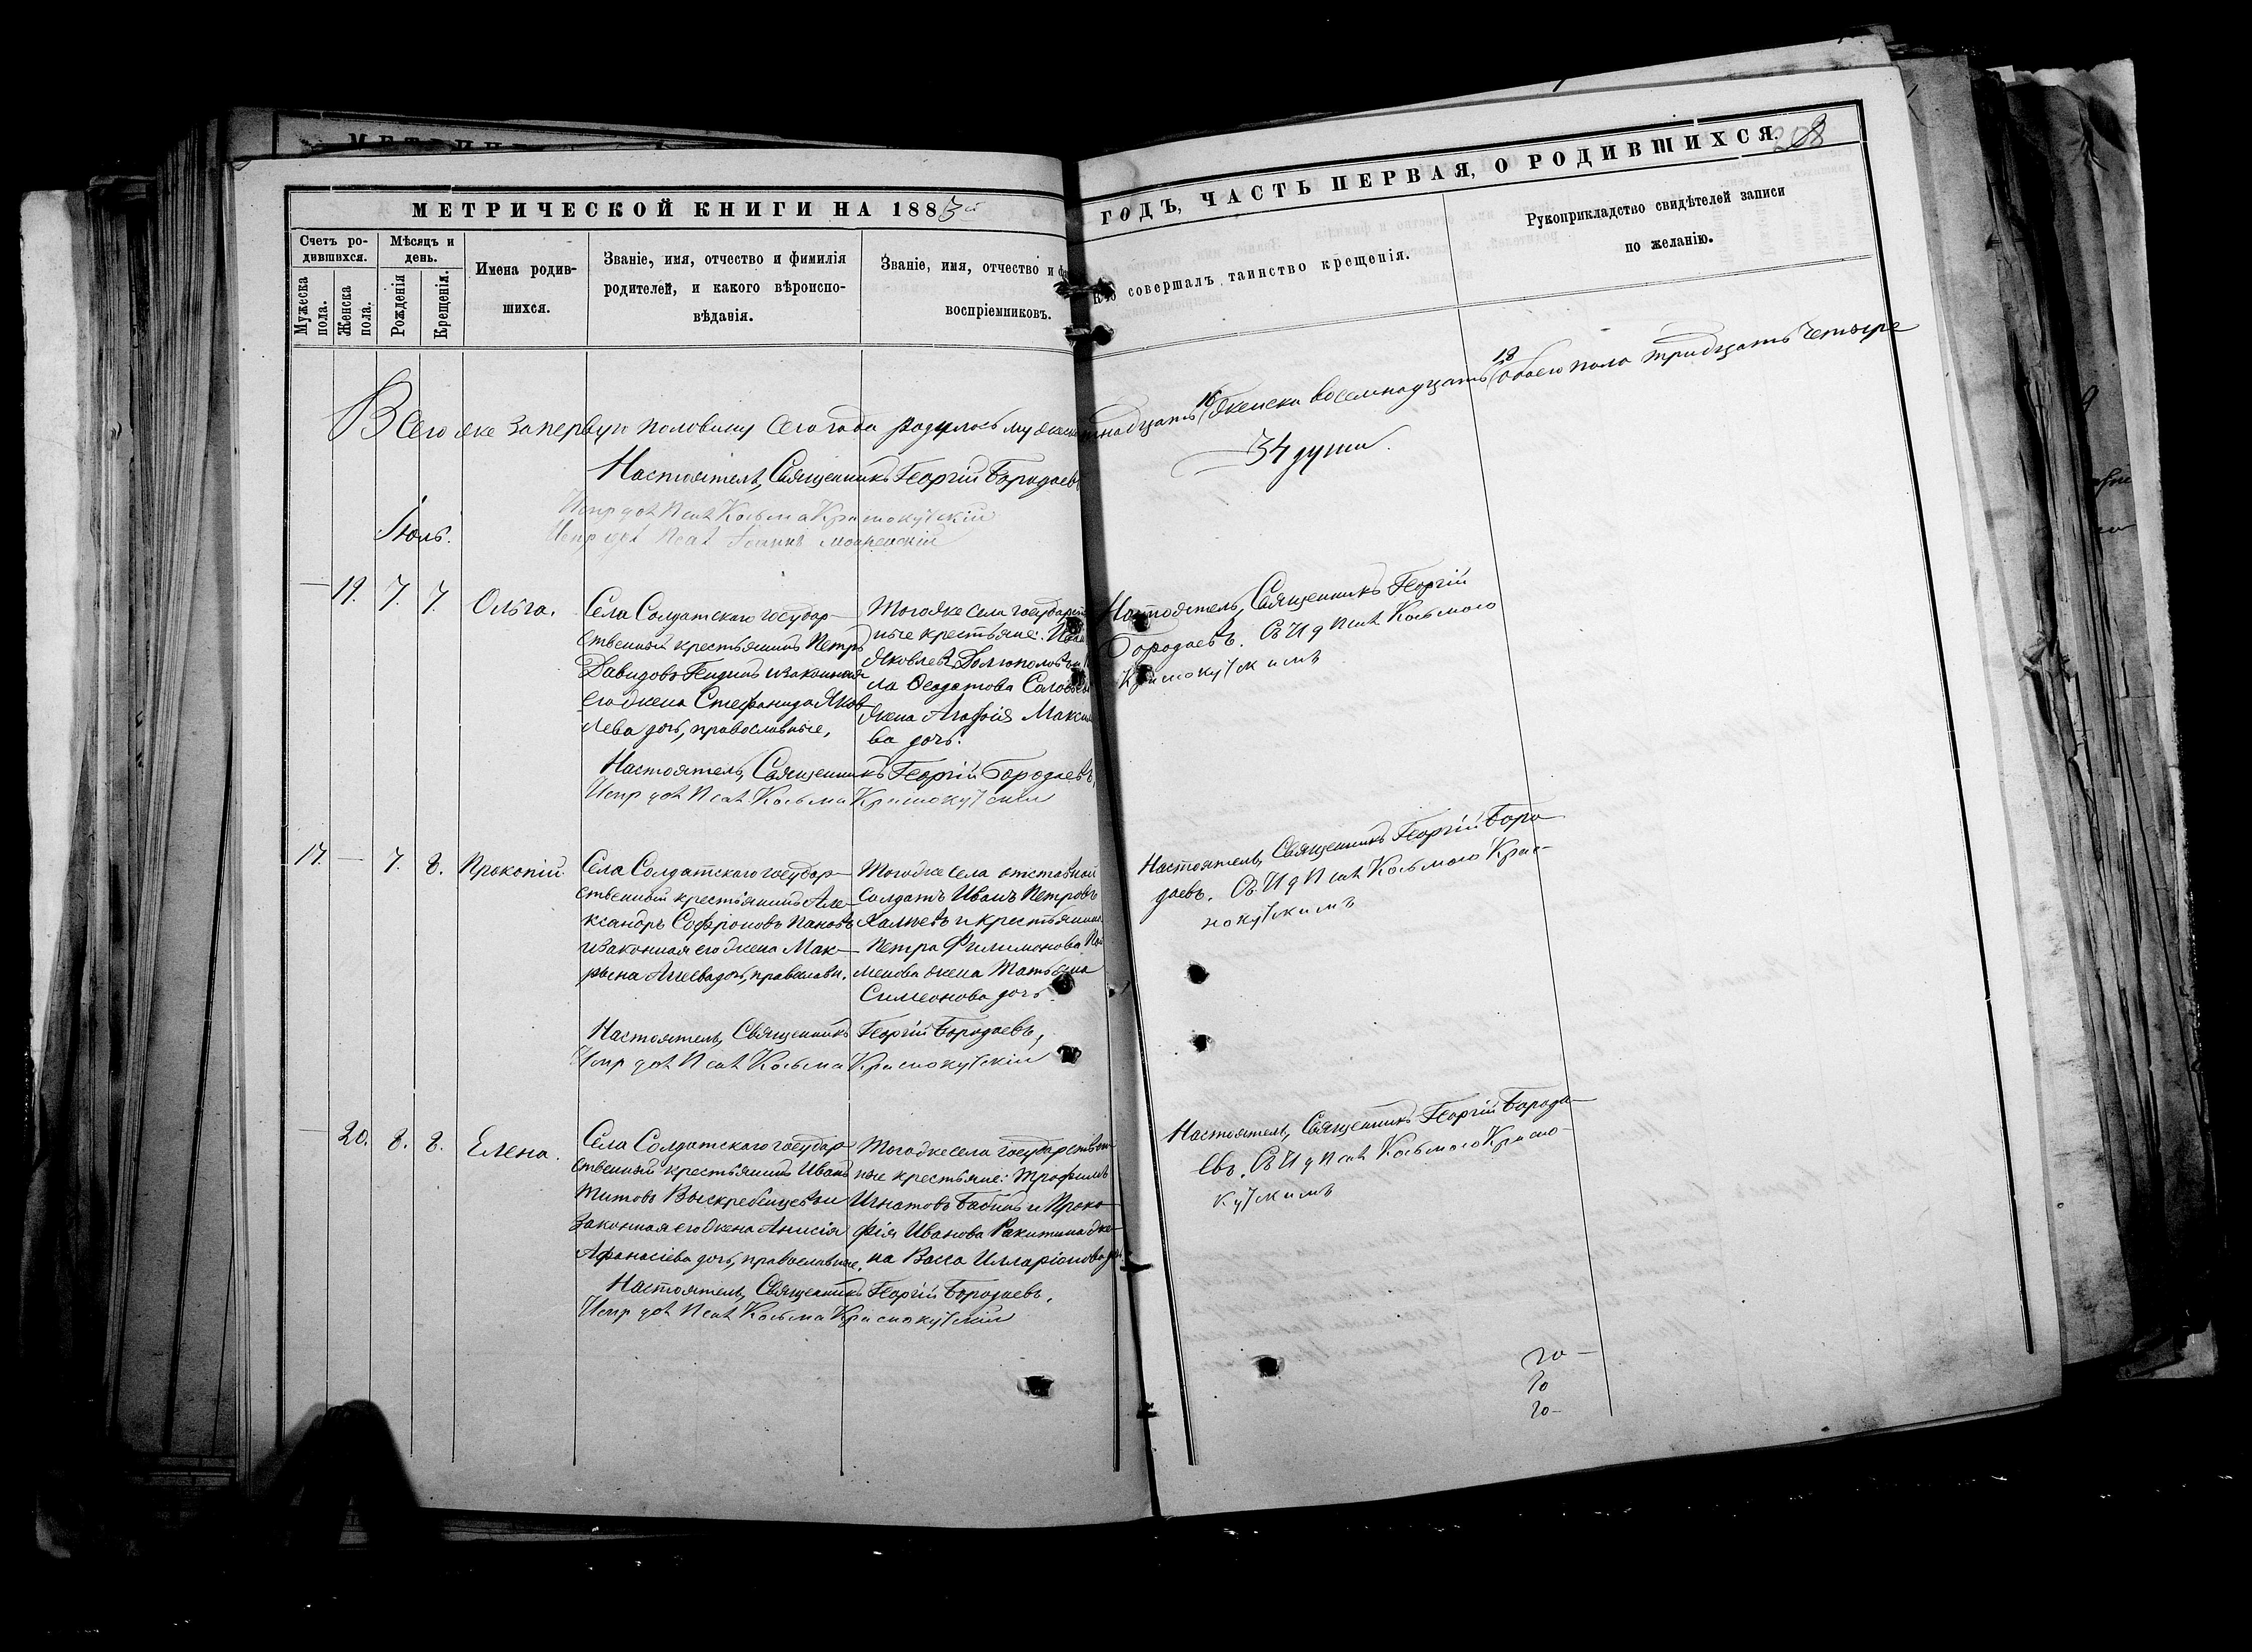 МЕТРИЧЕСКОЙ КНИГИ НА 1883й
ГОДЪ, ЧАСТЬ ПЕРВАЯ, О РОДИВШИХСЯ.
208
Счетъ ро-
дившихся.
Мужеска
пола.
Женска
пола.
Мѣсяцъ и
день.
Рожденія
Крещенія.
Имена родив-
шихся.
Званіе, имя, отчество и фимилія
родителей, и какого вѣроиспо-
вѣданія.
Званіе, имя, отчество и
воспріемниковъ.
Кто совершалъ таинство крещенія.
Рукоприкладство свидѣтелей записи
по желанію.
Всего же за первую половину сего года родилось
16
женска восемнадцать
18
обоего пола тридцать четыре
34 души.
Настоятель, Священникъ Георгій Бородаевъ
Испр дол Псал Козьма Краснокутскій
Испр дол Псал Іоаннъ
Іюль.
— 19. 7. 7. Ольга.
Села Солдатскаго государ-
ственный крестьянинъ Петръ
Давидовъ и законная
его жена Стефанида Яков-
лева дочь, православные,
Тогоже села государств
ные крестьяне:
Яковлевъ
ла Солов
жена Агафія Макси
ва дочь.
Настоятель, Священникъ Георгій
Бородаевъ. Съ И д Псал Козьмою
Краснокутскимъ
Настоятель, Священникъ Георгій Бородаевъ,
Испр дол Псал Козьма Краснокутскій
17. — 7. 8. Прокопій.
Села Солдатскаго государ-
ственный крестьянинъ Але-
ксандръ Софроновъ Пановъ
и законная его жена Мак-
рына дочь, православн.
Тогоже села отставной
солдатъ Иванъ Петровъ
и крестьянина
Петра Филимонова
менова жена Татьяна
Симеонова дочь.
Настоятель, Священникъ Георгій Боро-
даевъ. Съ И д Псал Козьмою Крас-
нокутскимъ
Настоятель, Священникъ Георгій Бородаевъ,
Испр дол Псал Козьма Краснокутскій
— 20. 8. 8. Елена.
Села Солдатскаго государ-
ственный крестьянинъ Иванъ
Титовъ и
законная его жена Анисія
Афанасіева дочь, православные.
Тогоже села государствен-
ные крестьяне: Трофимъ
Игнатовъ Бабинъ и Проко-
фія Иванова Ракитина же-
на Васса Илларіонова
Настоятель, Священникъ Георгій Борода-
евъ. Съ И д Псал Козьмою Красно-
кутскимъ
Настоятель, Священникъ Георгій Бородаевъ.
Испр дол Псал Козьма Краснокутскій